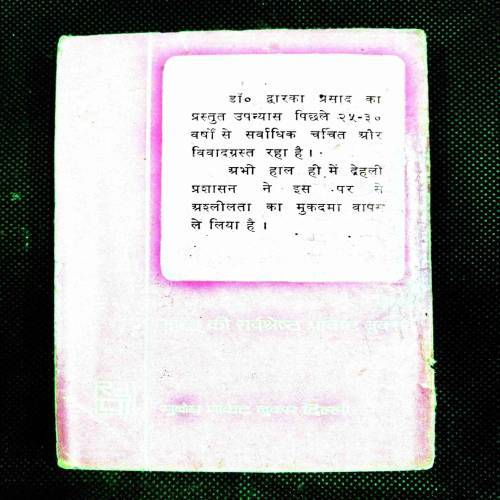 डॉ० द्वारका प्रसाद का
प्रस्तुत उपन्यास पिछले २५-३०
वर्षों से सर्वाधिक चर्चित और
विवादग्रस्त रहा है।
अभी हाल ही में देहली
प्रशासन ने इस पर से
अश्लीलता का मुकदमा वापस
ले लिया है।
की सर्वश्रेष्ठ पाकेट बुक
सुबोध पाकेट बुक्स दिल्ली